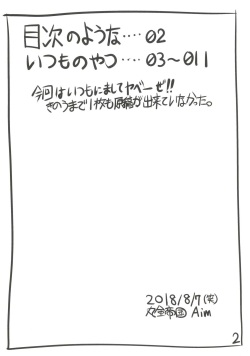 目次のような‥‥02
いつものやつ‥‥03〜011
今回はいつもにましてヤベーぜ!!
きのうまで1枚も原稿が出来ていなかった。
2018/8/7(笑)
Aim
2